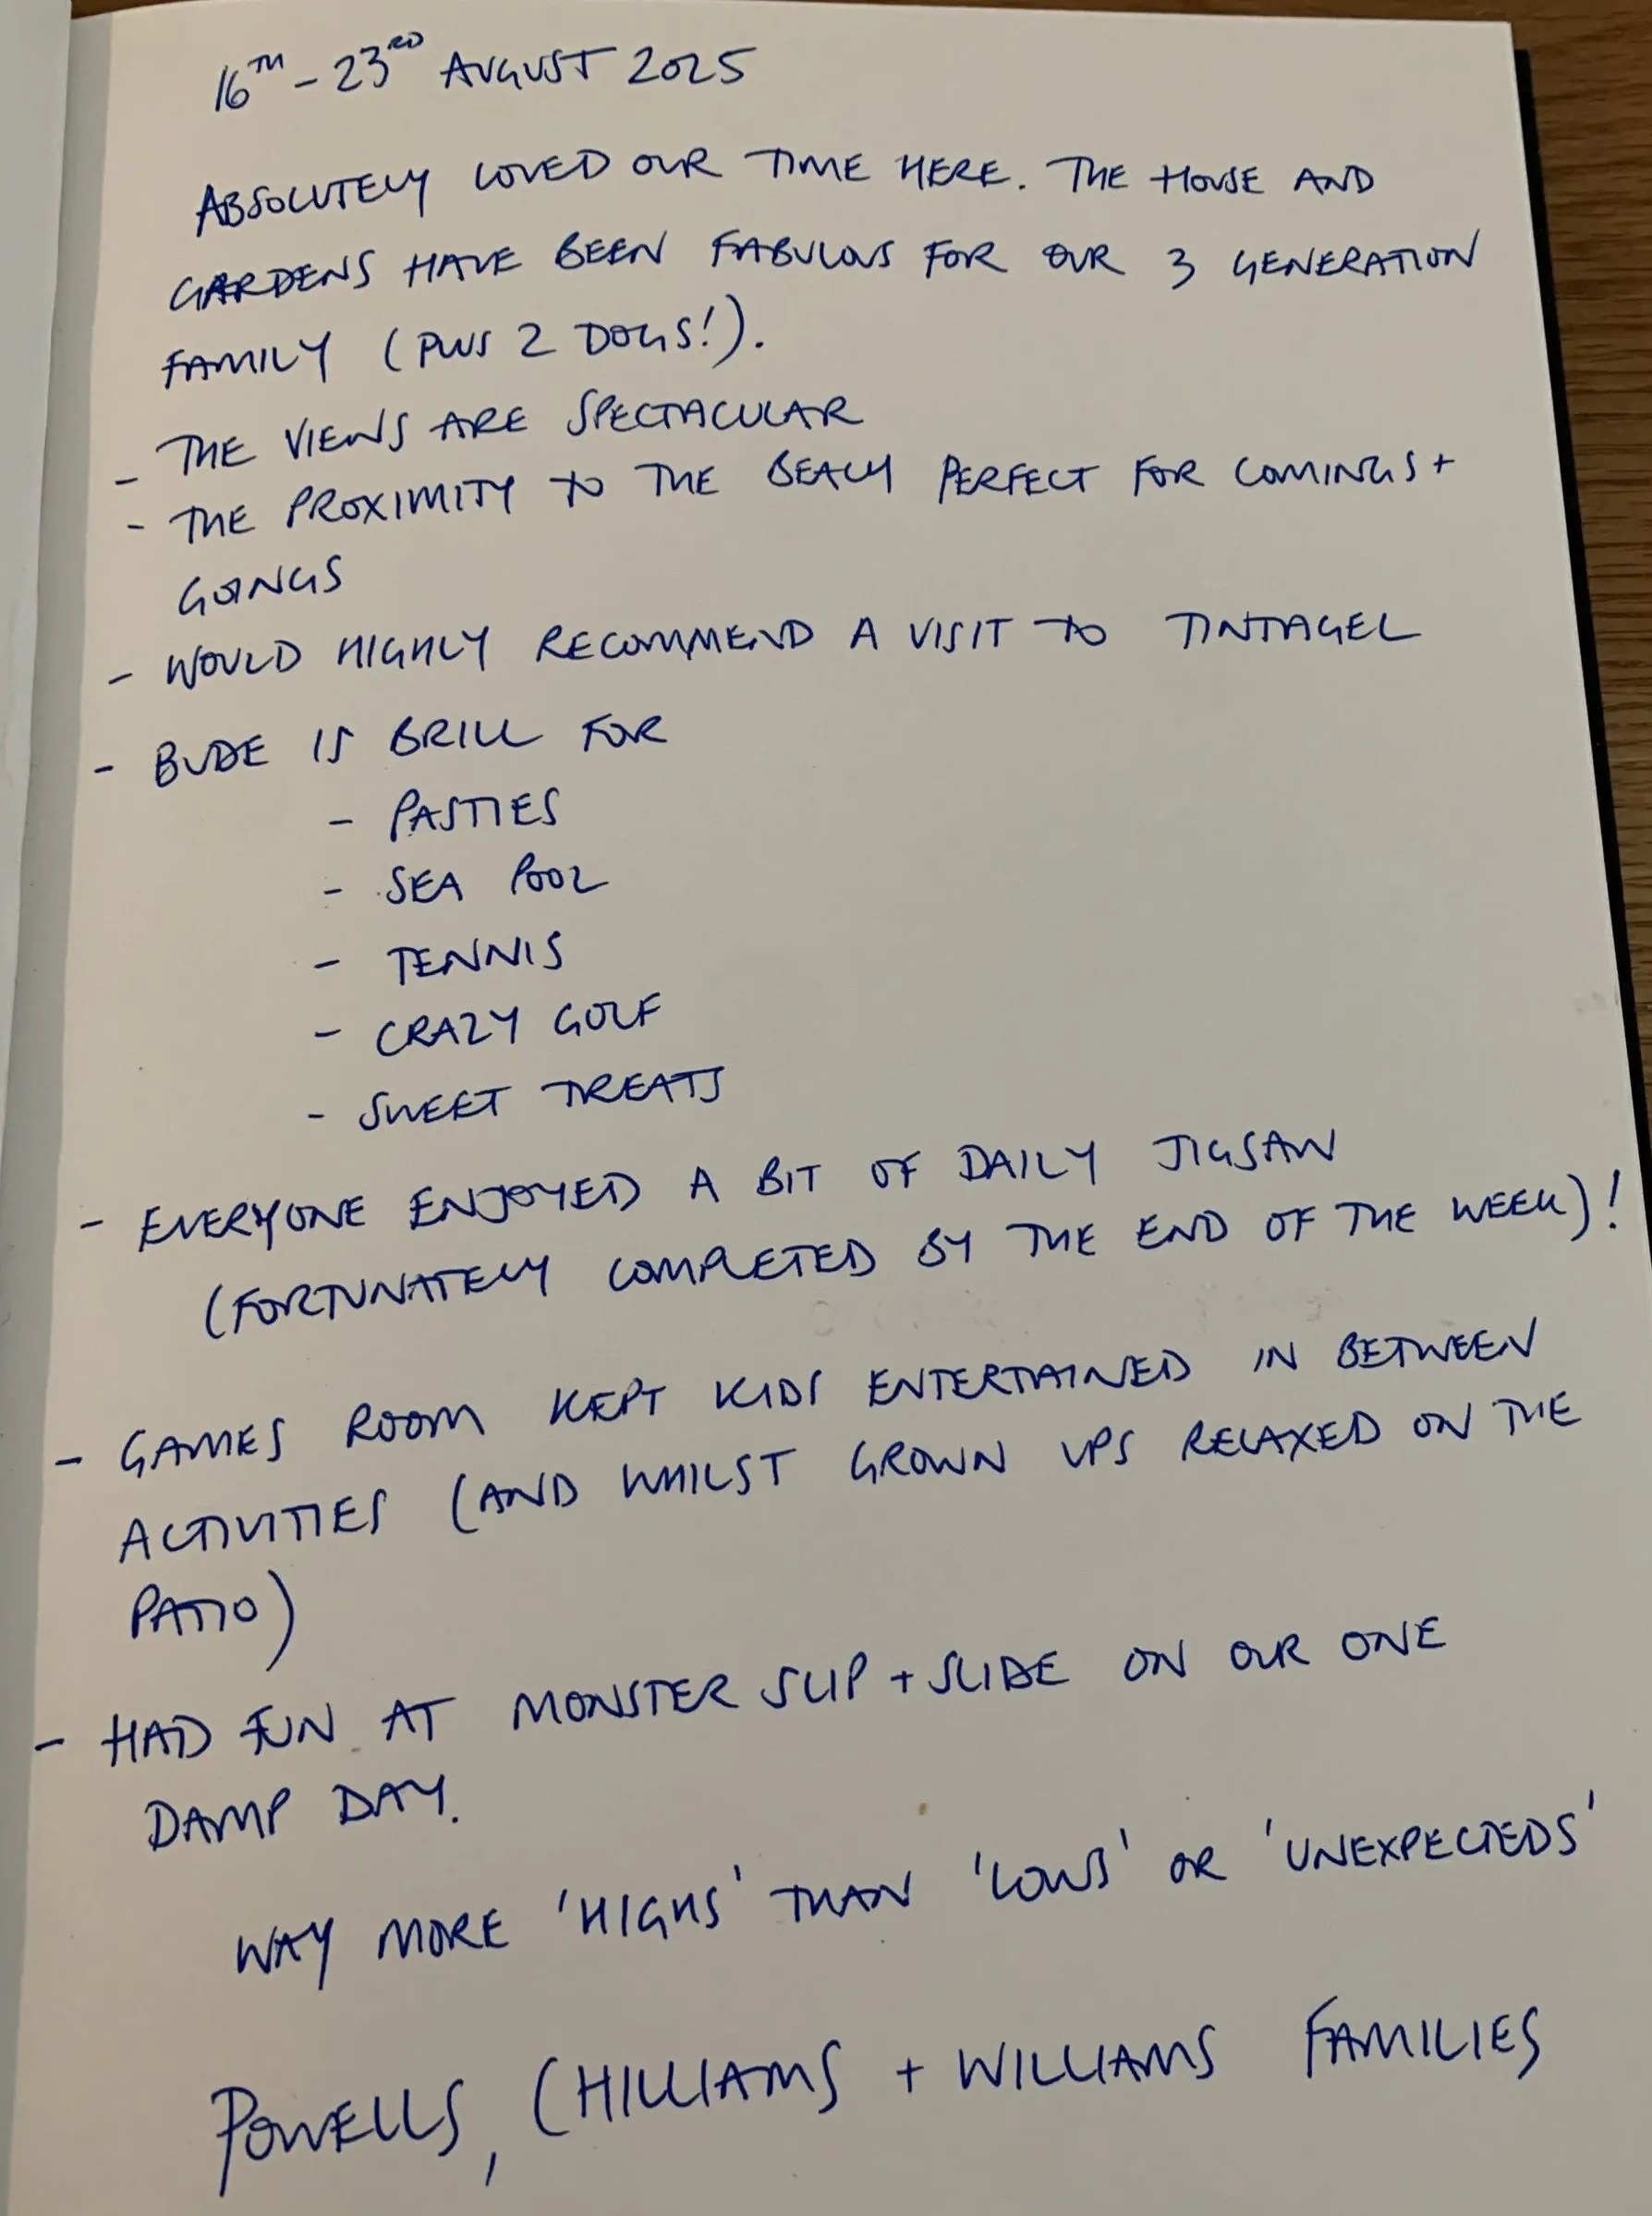 16TH - 23RD AUGUST 2025
ABSOLUTELY LOVED OUR TIME HERE. THE HOUSE AND
GARDENS HAVE BEEN FABULOUS FOR OUR 3 GENERATION
FAMILY (PLUS 2 DOGS!).
- THE VIEWS ARE SPECTACULAR
- THE PROXIMITY TO THE BEACH PERFECT FOR COMINGS +
GOINGS
- WOULD HIGHLY RECOMMEND A VISIT TO TINTAGEL
- BUDE IS BRILL FOR
- PASTIES
- SEA POOL
- TENNIS
- CRAZY GOLF
- SWEET TREATS
- EVERYONE ENJOYED A BIT OF DAILY JIGSAW
(FORTUNATELY COMPLETED BY THE END OF THE WEEK)!
- GAMES ROOM KEPT KIDS ENTERTAINED IN BETWEEN
ACTIVITIES (AND WHILST GROWN UPS RELAXED ON THE
PATIO)
- HAD FUN AT MONSTER SLIP + SLIDE ON OUR ONE
DAMP DAY.
WAY MORE 'HIGHS' THAN 'LOWS' OR 'UNEXPECTEDS'
POWELLS, (HILLIAMS + WILLIAMS FAMILIES